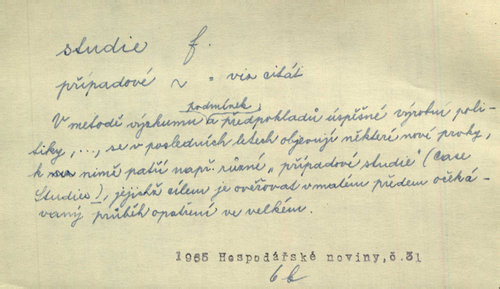 studie f.
případové ~ = viz citát
podmínek,
V metodě výzkumu a předpokladů úspěšné výrobní poli-
tiky, ..., se v posledních letech objevují některé nové prvky,
k nimž patří např. různé „případové studie" (Case
Studies), jejichž cílem je ověřovat v malém předem očeká-
vaný průběh opatření ve velkém.
1965 Hospodářské noviny, č.31